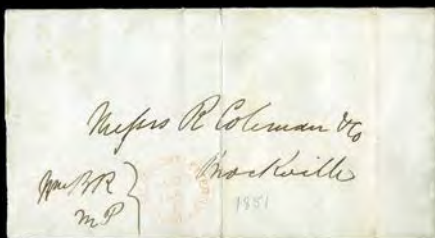 Messrs R Coleman & Co
Brockville
Wm BR
MP
1851